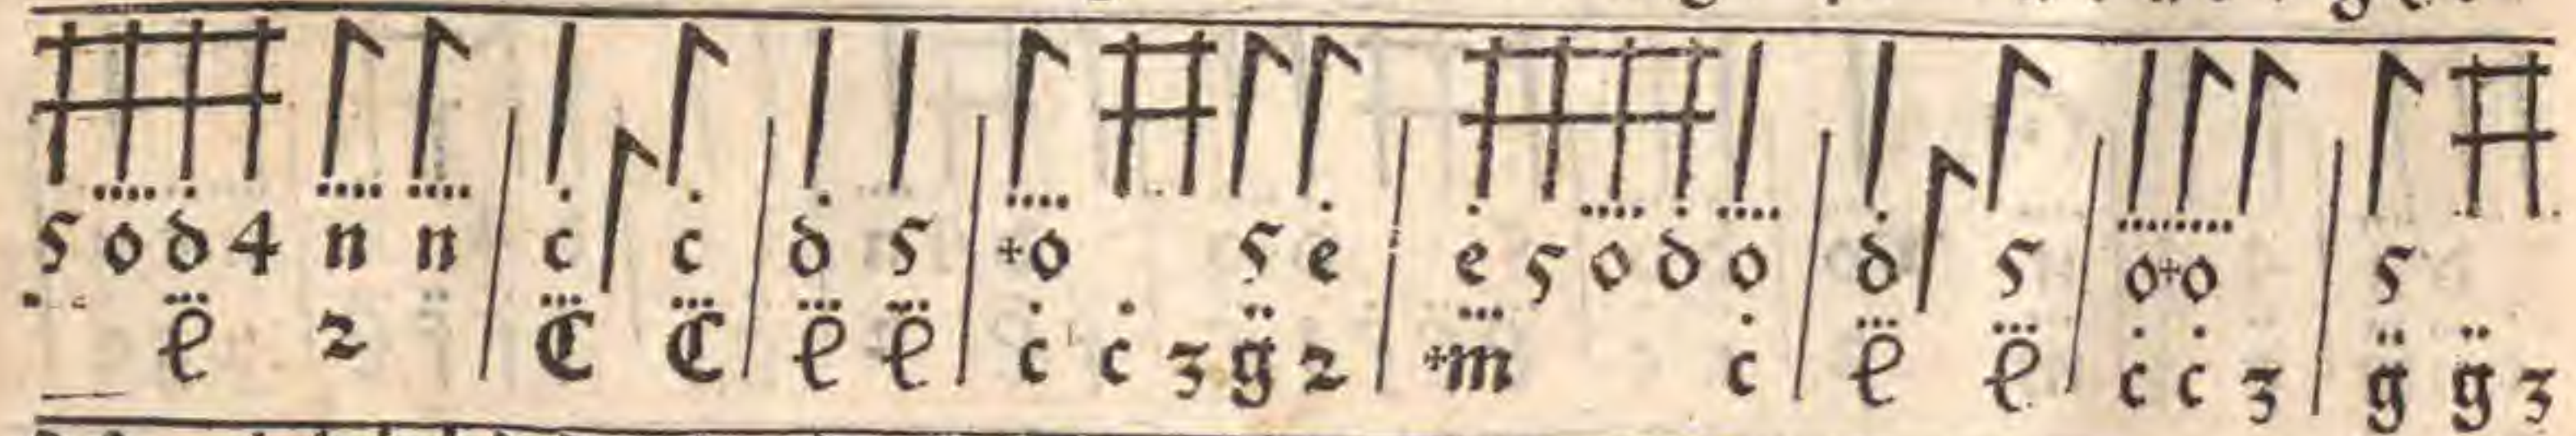 5 o d 4 n n c c d 5 +o 5 e e 5 o d o d 5 o +o 5
ℓ 2 C C ℓ ℓ c c 3 g 2 +m c ℓ ℓ c c 3 g g 3